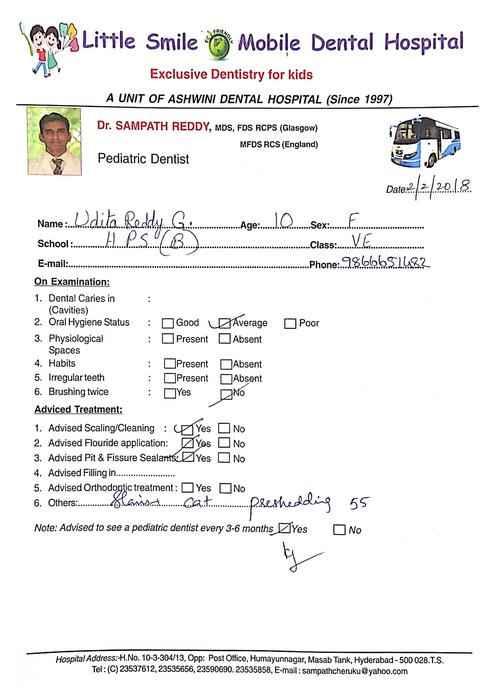 Little Smile ECO FRIENDLY Mobile Dental Hospital
Exclusive Dentistry for kids
A UNIT OF ASHWINI DENTAL HOSPITAL (Since 1997)
Dr. SAMPATH REDDY, MDS, FDS RCPS (Glasgow)
MFDS RCS (England)
Pediatric Dentist
Date: 2/2/2018
Name: Udita Reddy G. Age: 10 Sex: F
School: HPS (B) Class: VE
E-mail: Phone: 9866651682
On Examination:
1. Dental Caries in :
(Cavities)
2. Oral Hygiene Status : Good Average Poor
3. Physiological : Present Absent
Spaces
4. Habits : Present Absent
5. Irregular teeth : Present Absent
6. Brushing twice : Yes No
Adviced Treatment:
1. Advised Scaling/Cleaning : Yes No
2. Advised Flouride application: Yes No
3. Advised Pit & Fissure Sealants: Yes No
4. Advised Filling in
5. Advised Orthodontic treatment : Yes No
6. Others: Stains cat preshedding 55
Note: Advised to see a pediatric dentist every 3-6 months Yes No
Hospital Address:-H.No. 10-3-304/13, Opp: Post Office, Humayunnagar, Masab Tank, Hyderabad - 500 028.T.S.
Tel : (C) 23537612, 23535656, 23590690. 23535858, E-mail : sampathcheruku@yahoo.com